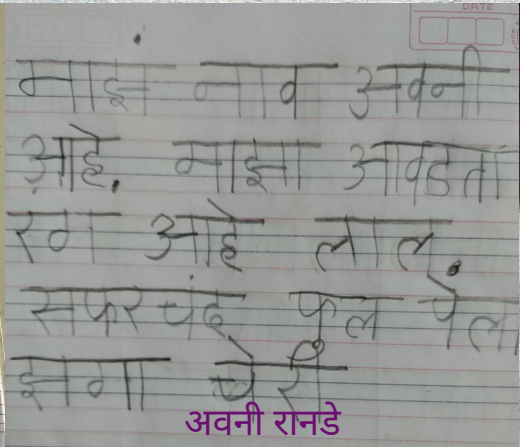 माझ नाव अवनी
आहे. माझा आवडता
रंग आहे लाल.
सफरचंद फुल पेला
झगा चेरी
अवनी रानडे